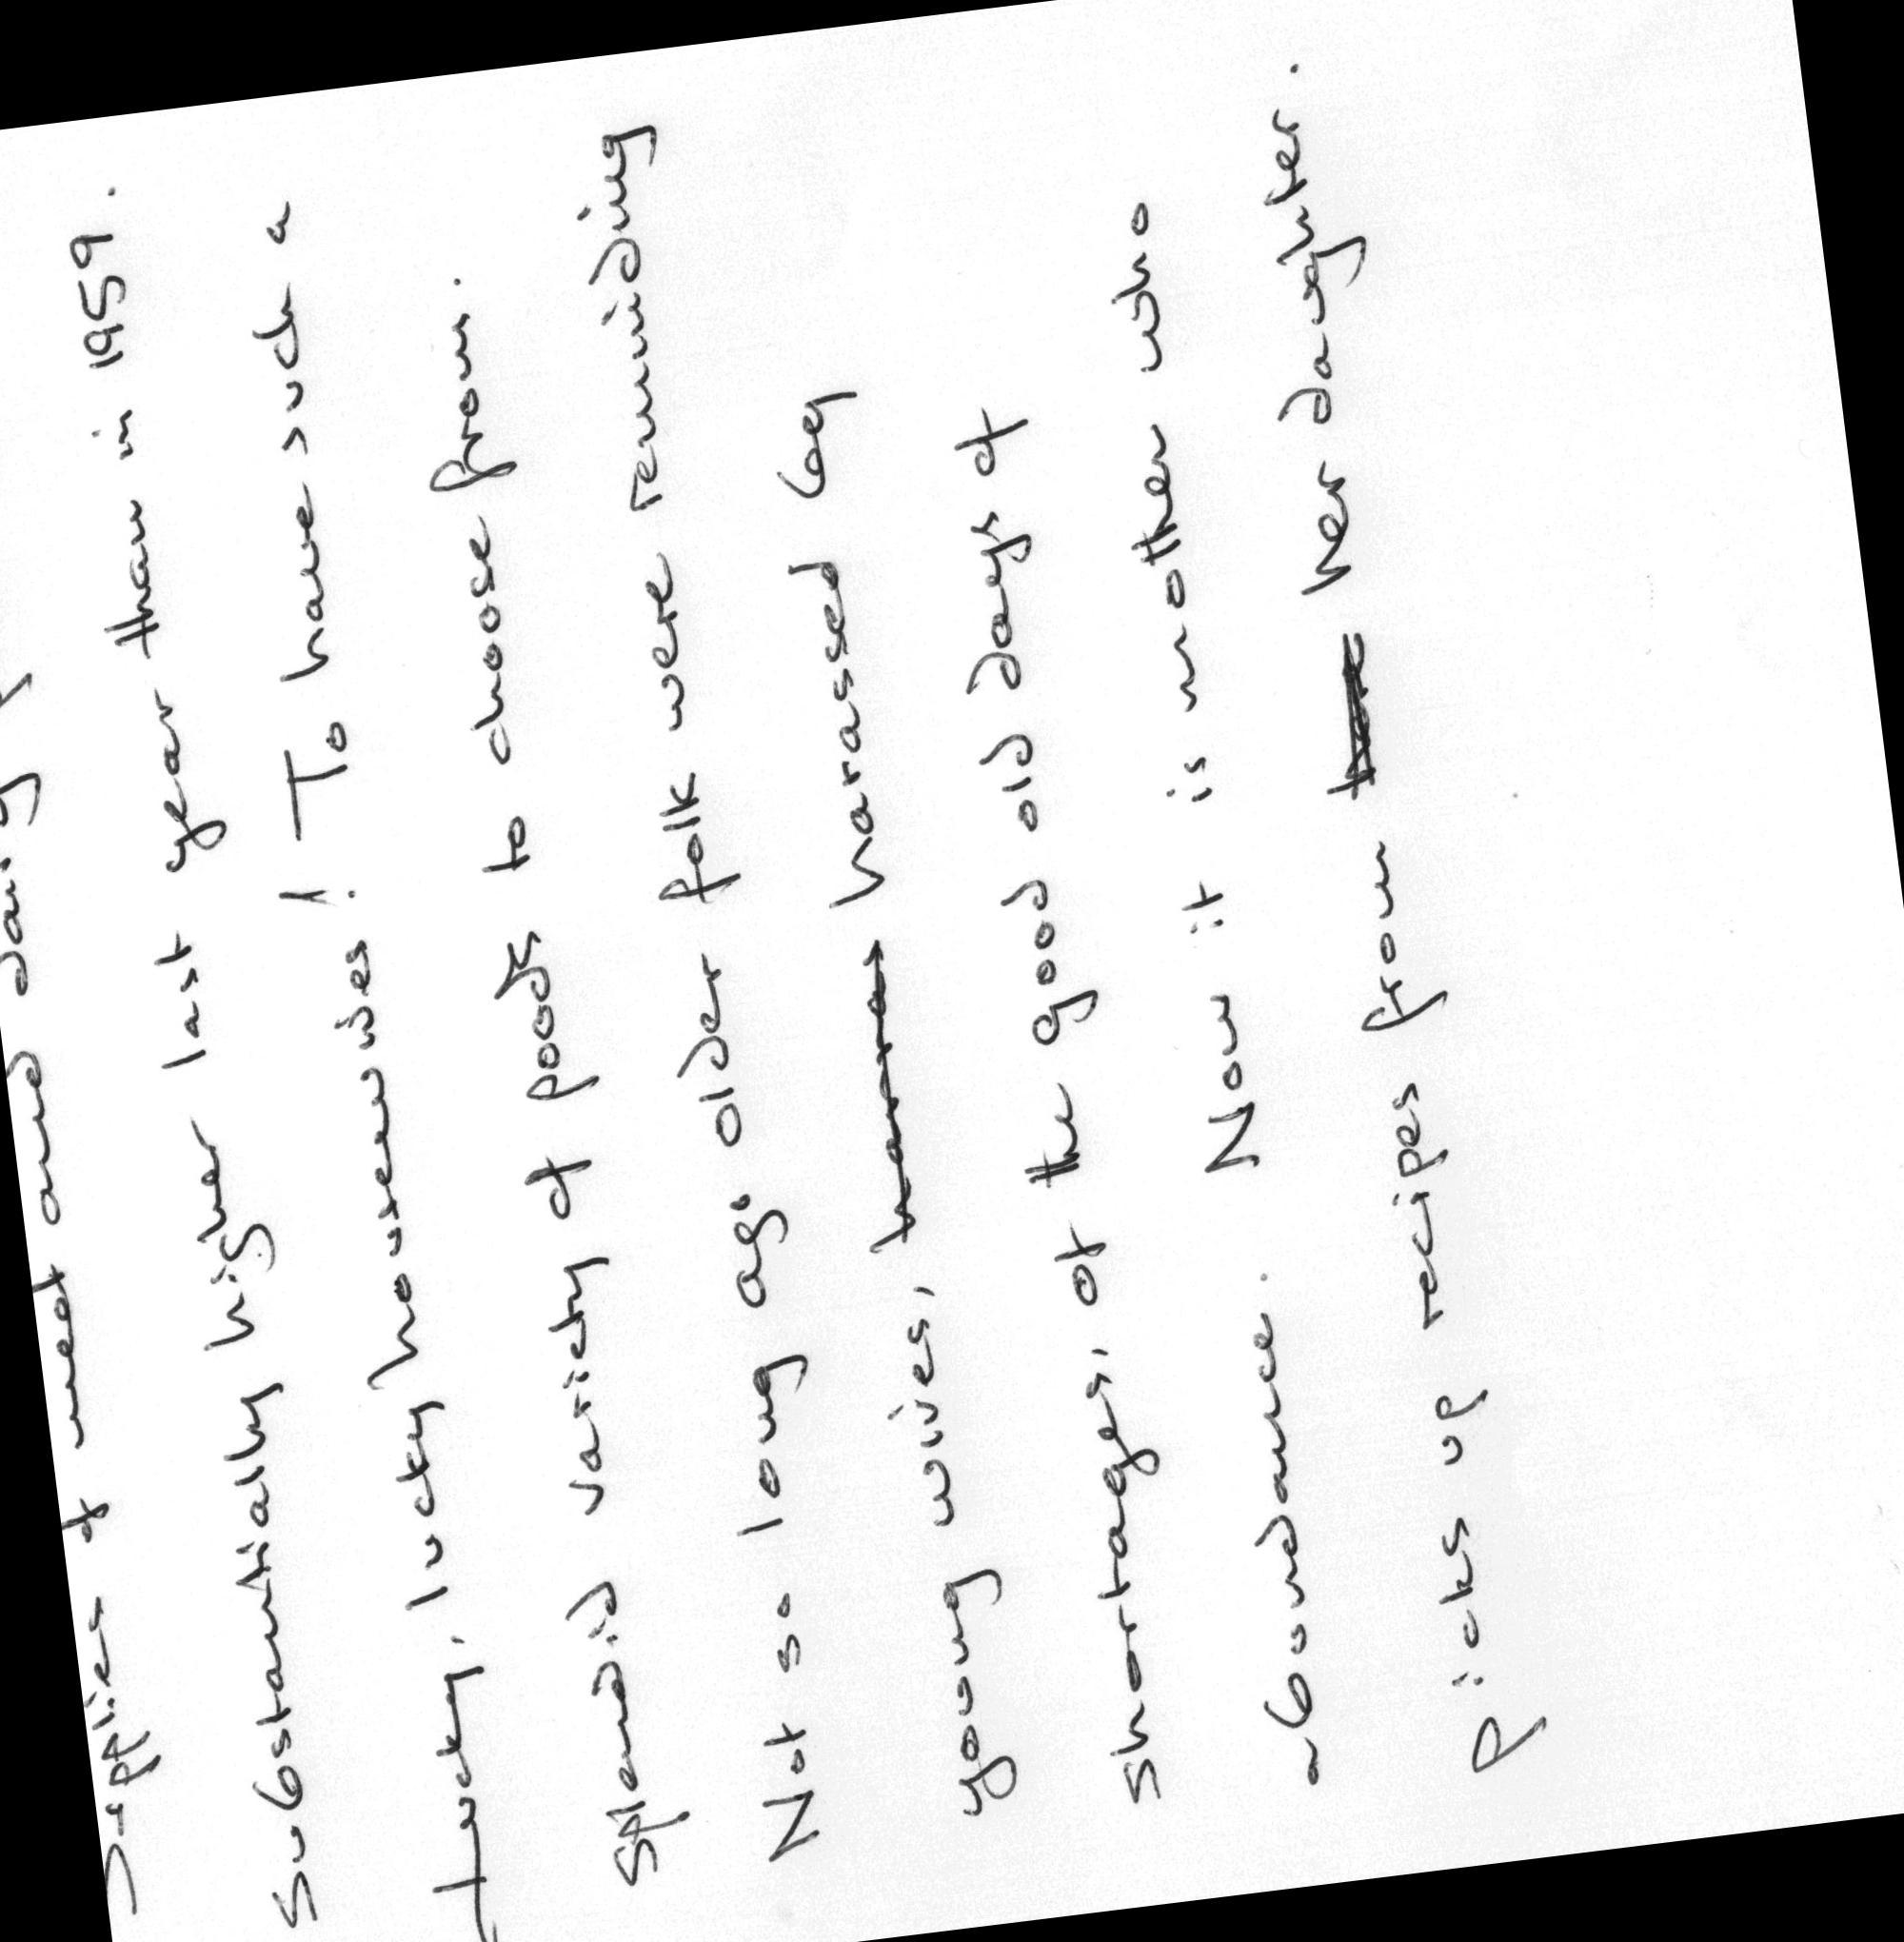 Supplies of meat and dairy
substantially higher last year than in 1959.
Lucky, lucky housewives! To have such a
splendid variety of foods to choose from.
Not so long ago older folk were reminding
young wives, harassed by
shortages, of the good old days of
abundance. Now it is mother who
picks up recipes from her daughter.